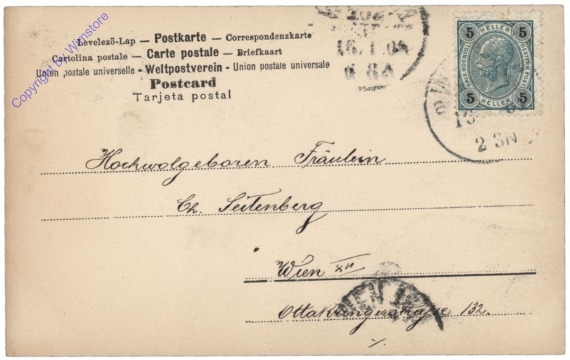 Levelező-Lap — Postkarte — Correspondenzkarte
Cartolina postale — Carte postale — Briefkaart
Union postale universelle — Weltpostverein - Union postale universale
Postcard
Tarjeta postal
Copyright by Wertstore
5 HELLER 5
5 HELLER 5
16.1.04
2 5N
Hochwolgeboren Fräulein
Ch. Seitenberg
Wien XVI
Ottakringerstrasse 132.
WIEN